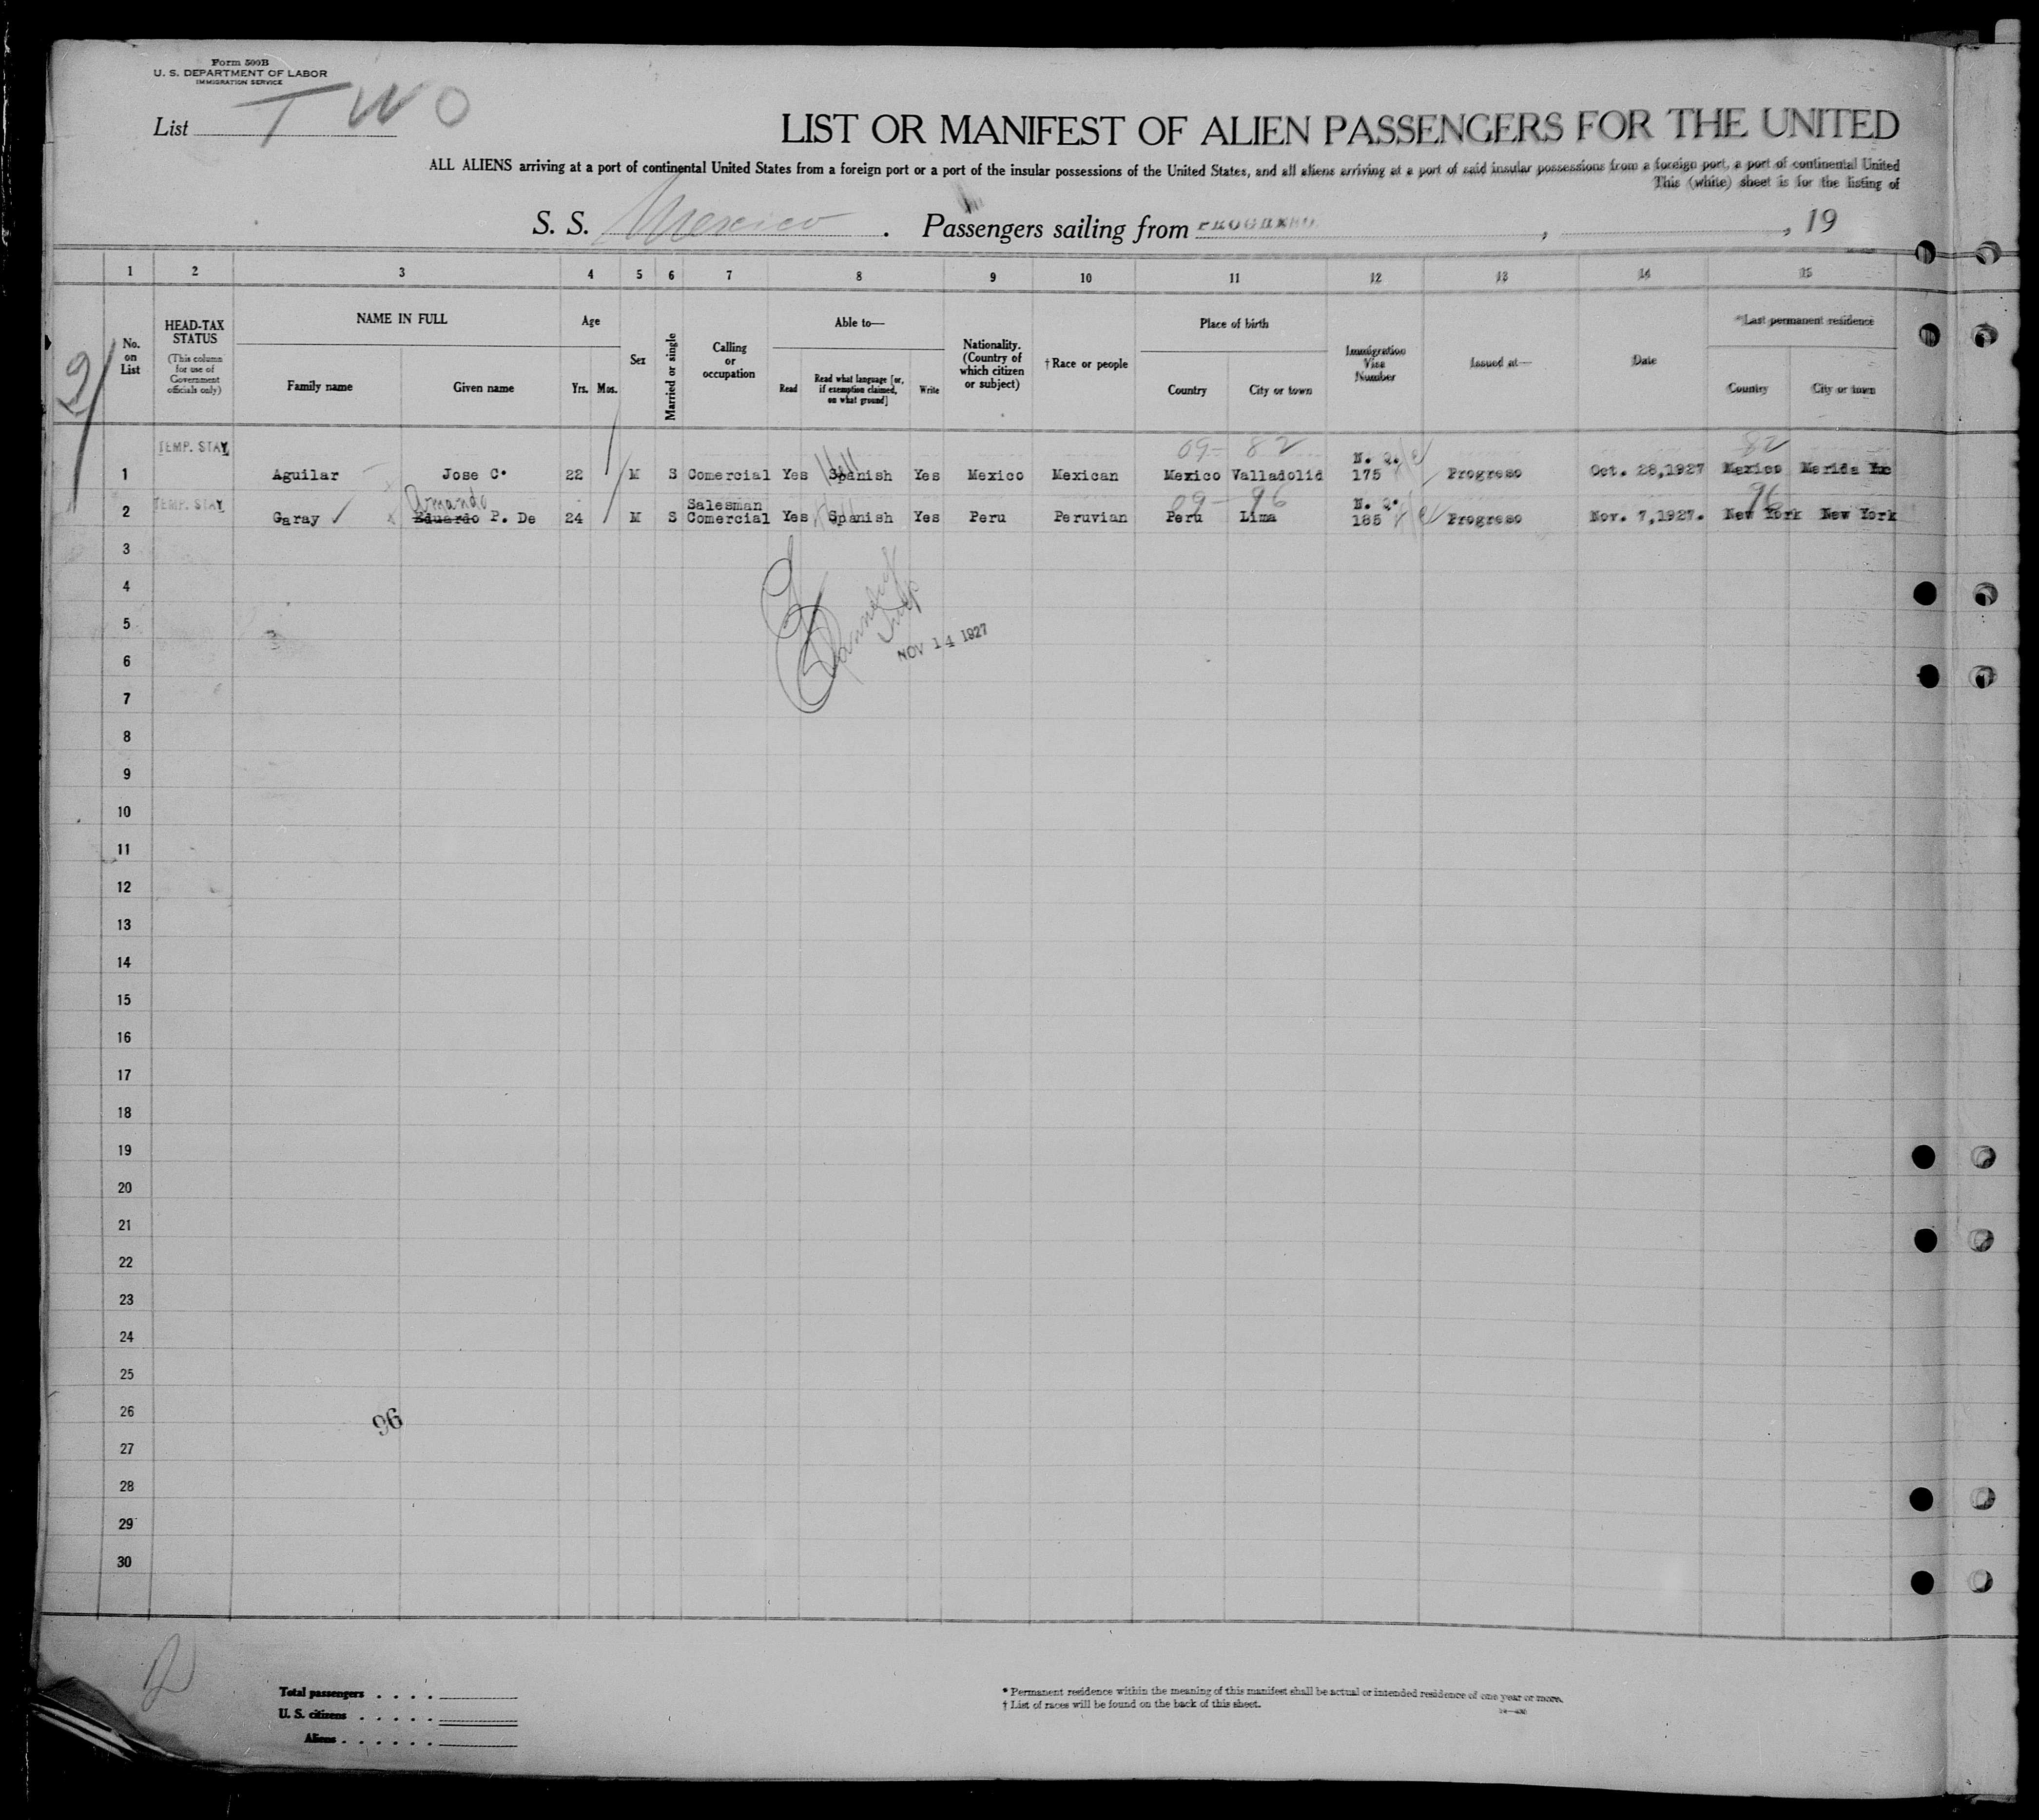 Form 500B
U. S. DEPARTMENT OF LABOR
IMMIGRATION SERVICE
List TWO
LIST OR MANIFEST OF ALIEN PASSENGERS FOR THE UNITED
ALL ALIENS arriving at a port of continental United States from a foreign port or a port of the insular possessions of the United States, and all aliens arriving at a port of said insular possessions from a foreign port, a port of continental United
This (white) sheet is for the listing of
S. S. Mexico . Passengers sailing from PROGRESO , , 19
1 2 3 4 5 6 7 8 9 10 11 12 13 14 15
No. on List
HEAD-TAX STATUS
(This column for use of Government officials only)
NAME IN FULL
Family name Given name
Age
Yrs. Mos.
Sex
Married or single
Calling or occupation
Able to—
Read Read what language [or, if exemption claimed, on what ground] Write
Nationality. (Country of which citizen or subject)
† Race or people
Place of birth
Country City or town
Immigration Visa Number
Issued at—
Date
*Last permanent residence
Country City or town
TEMP. STAY 09- 82 82
N. Q.
1 Aguilar Jose C. 22 M S Comercial Yes Spanish Yes Mexico Mexican Mexico Valladolid 175 Progreso Oct. 28,1927 Mexico Merida Yuc
TEMP. STAY Armando Salesman 09- 96 N. Q. 96
2 Garay Eduardo P. De 24 M S Comercial Yes Spanish Yes Peru Peruvian Peru Lima 185 Progreso Nov. 7,1927. New York New York
3
4
5
6
NOV 14 1927
7
8
9
10
11
12
13
14
15
16
17
18
19
20
21
22
23
24
25
26
96
27
28
29
30
2
Total passengers . . . .
U. S. citizens . . . . .
Aliens . . . . . .
* Permanent residence within the meaning of this manifest shall be actual or intended residence of one year or more.
† List of races will be found on the back of this sheet.